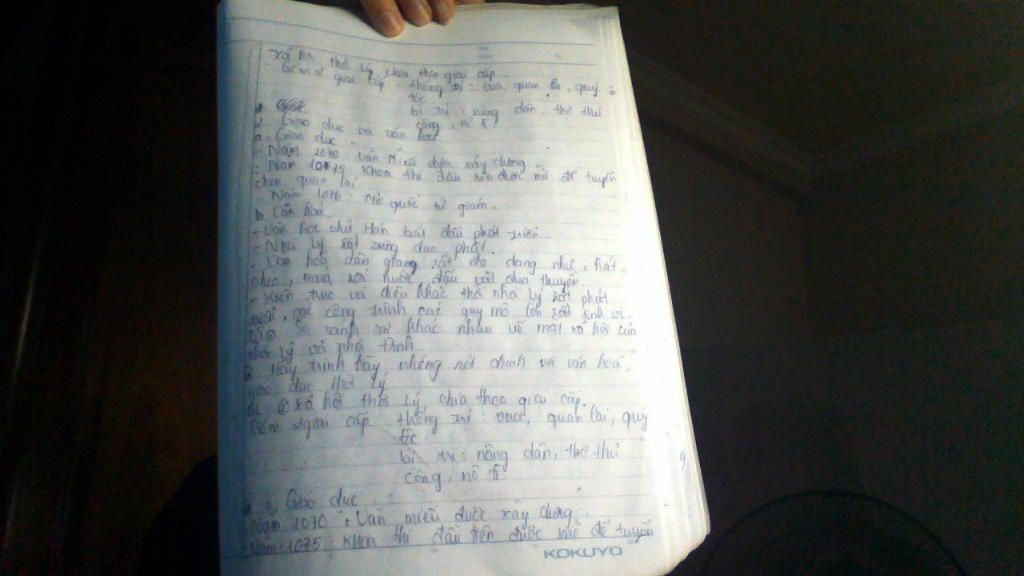 xã hội thời lý chia theo giai cấp.
- Gồm 2 giai cấp: thống trị: vua, quan lại, quý
tộc
bị trị: nông dân, thợ thủ
công, nô tì.
2. Giáo dục và văn hoá
a. Giáo dục.
- Năm 1070 văn Miếu được xây dựng.
- Năm 1075: Khoa thi đầu tiên được mở để tuyển
chọn quan lại
Năm 1076: Mở quốc tử giám.
b. Văn hoá.
- Văn học chữ Hán bắt đầu phát triển.
- Nhà Lý rất sùng đạo phật.
- Văn hoá dân gian rất đa dạng như: hát
chèo, múa rối nước, đấu vật đua thuyền.
- Kiến trúc và điêu khắc thời nhà lý rất phát
triển, các công trình các quy mô lớn rất tinh vi.
So sánh sự khác nhau về mặt xã hội của
nhà lý và nhà Đinh.
Hãy trình bày những nét chính về văn hoá,
giáo dục thời lý
xã hội thời Lý chia theo giai cấp.
giai cấp thống trị: vua, quan lại, quý
tộc.
bị trị: nông dân, thợ thủ
công, nô tì.
a, Giáo dục
- Năm 1070: Văn miếu được xây dựng.
- Năm 1075: Khoa thi đầu tiên được mở để tuyển
KOKUYO